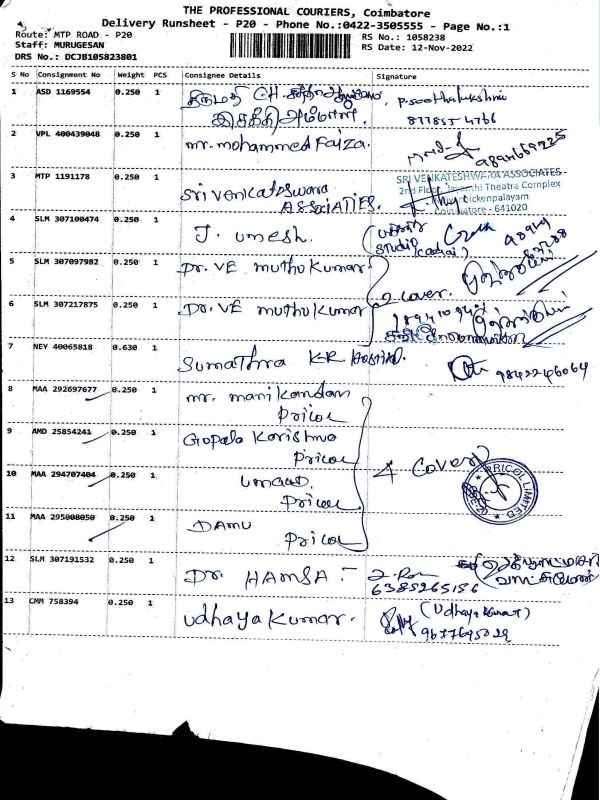 THE PROFESSIONAL COURIERS, Coimbatore
Delivery Runsheet - P20 - Phone No.:0422-3505555 - Page No.:1
Route: MTP ROAD - P20
RS No.: 1058238
Staff: MURUGESAN
RS Date: 12-Nov-2022
DRS No.: DCJB105823801
S No Consignment No Weight PCS Consignee Details Signature
1 ASD 1169554 0.250 1 திருமதி CH.
877855 4766
2 VPL 400439048 0.250 1 mr. mohammed Faiza.
3 MTP 1191178 0.250 1 Sri Venkateswara ASSOCIATIES.
SRI VENKATESHWARA ASSOCIATES
2nd Floor, Theatra Complex
Coimbatore - 641020
4 SLM 307100474 0.250 1 J. umesh.
Studio
5 SLM 307097982 0.250 1 Dr. VE muthu kumar
2 cover.
6 SLM 307217875 0.250 1 Dr. VE muthu kumar
7 NEY 40065818 0.630 1 Sumathra KR Hospital.
9842246064
8 MAA 292697677 0.250 1 mr. manikandan
Pricol
9 AMD 25854241 0.250 1 Gopala Karishna
Pricol
4 Cover
PRICOL LIMITED
10 MAA 294707404 0.250 1
Pricol
11 MAA 295008050 0.250 1 DAMU
Pricol
12 SLM 307191532 0.250 1 Dr. HAMSA
6385265156
13 CMM 758394 0.250 1 Udhaya Kumar.
(Udhaya Kumar)
9677695029